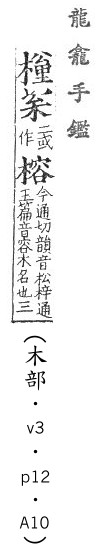 龍龕手鑑
二或作
榕
今通切韻音松梓通
玉篇音容木名也三
(木部・v3・p12・A10)